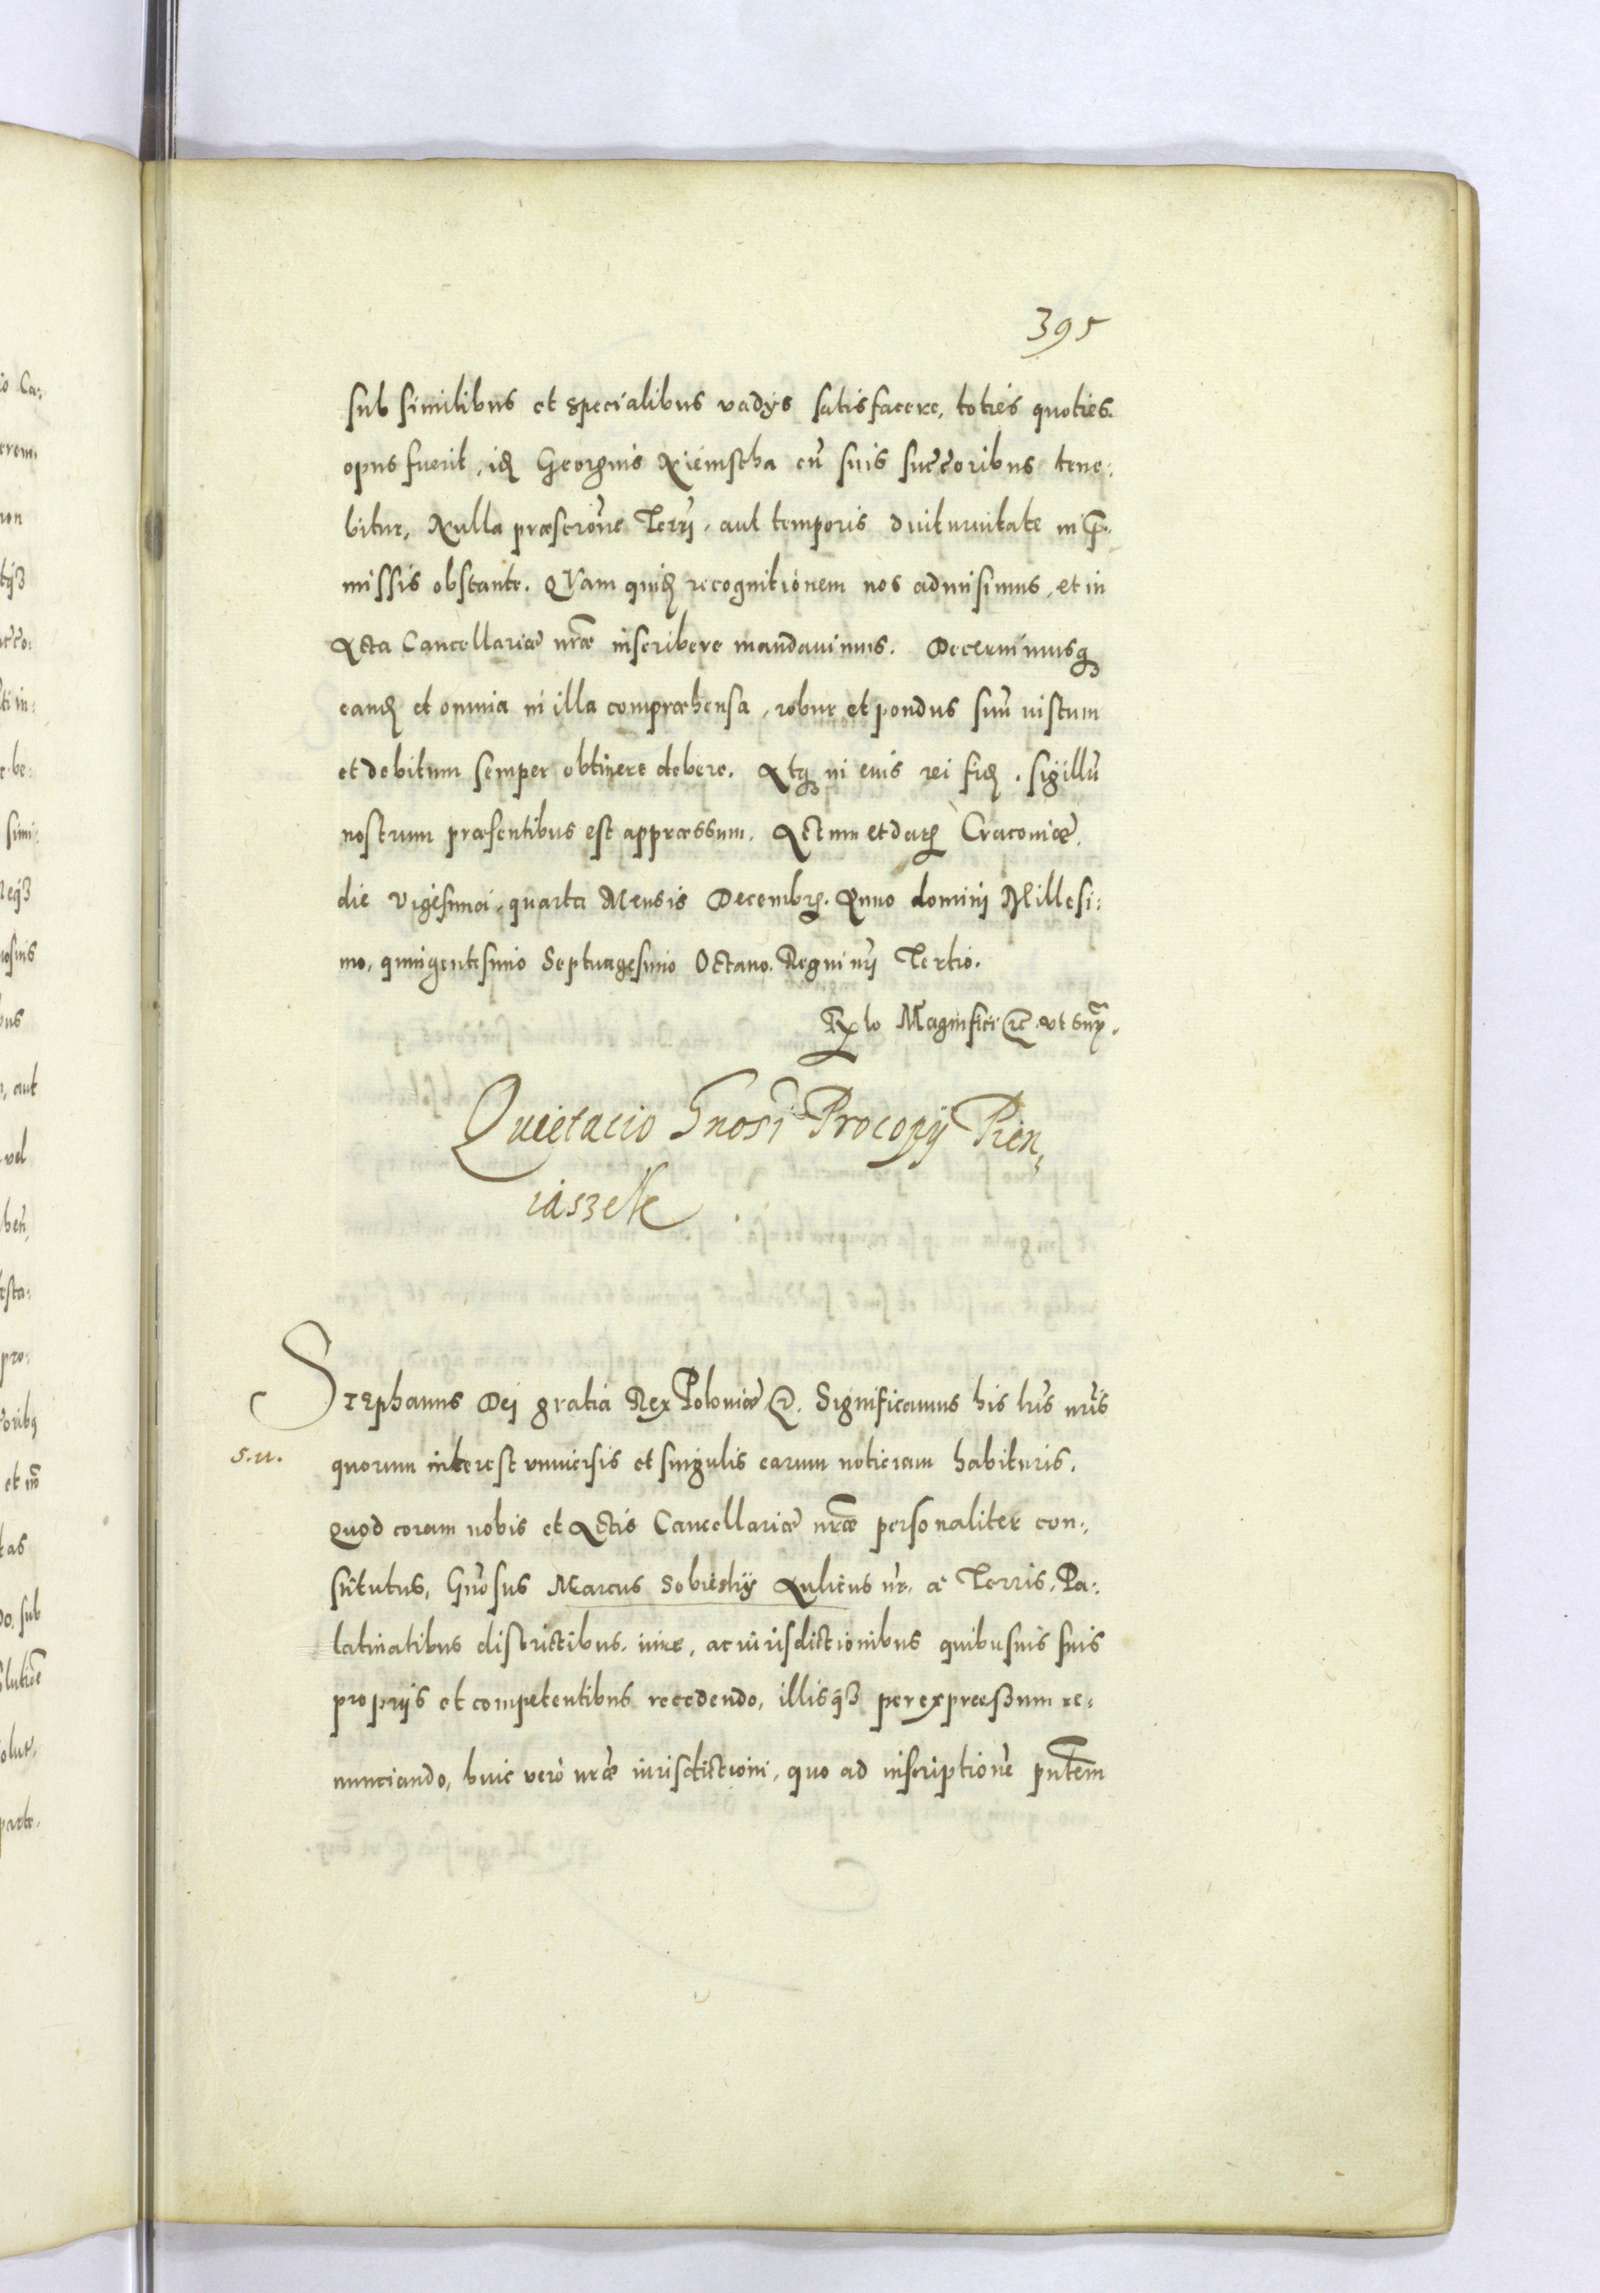 395
sub similibus et specialibus vadÿs satisfacere, toties quoties.
opus fuerit, idꝫ Georgius Niemstha cū suis succōribus tene:
bitur, Nulla præscriōne Terrī, aut temporis diuturnitate in p̄:
missis obstante. QVam quidꝫ recognitionem nos admisimus, et in
Acta Cancellariæ nr̄æ inscribere mandauimus. Decernimusqꝫ
eandꝫ et omnia in illa compræhensa, robur et pondus suū iustum
et debitum semper obtinere debere. Atqꝫ in euis rei fidꝫ. sigillū
nostrum præsentibus est appræssum. Actum et datꝫ Cracoviæ.
die vigesima quarta Mensis Decembrꝫ. Anno domini Millesi:
mo, quingentesimo Septuagesimo Octauo. Regni nr̄i Tertio.
Rlo Magnifici etc. ut supra.
Quietacio Gnosi Procopÿ Pien,
iaszek
Stephanus Dej gratia Rex Poloniæ etc. Significamus his lr̄is nr̄is
S. u.
quorum interest vniuersis et singulis earum noticiam habituris.
Quod coram nobis et Actis Cancellariæ nr̄æ personaliter con:,
stitutus, Gn̄osus Marcus Sobieskÿ Aulicus nr̄. a Terris, Pa:
latinatibus districtibus. iure, ac iurisdictionibus quibusuis suis
proprijs et competentibus recedendo, illisqꝫ per expræssum re:
nunciando, huic verò nr̄æ iurisdictioni, quo ad inscriptionē pn̄tem